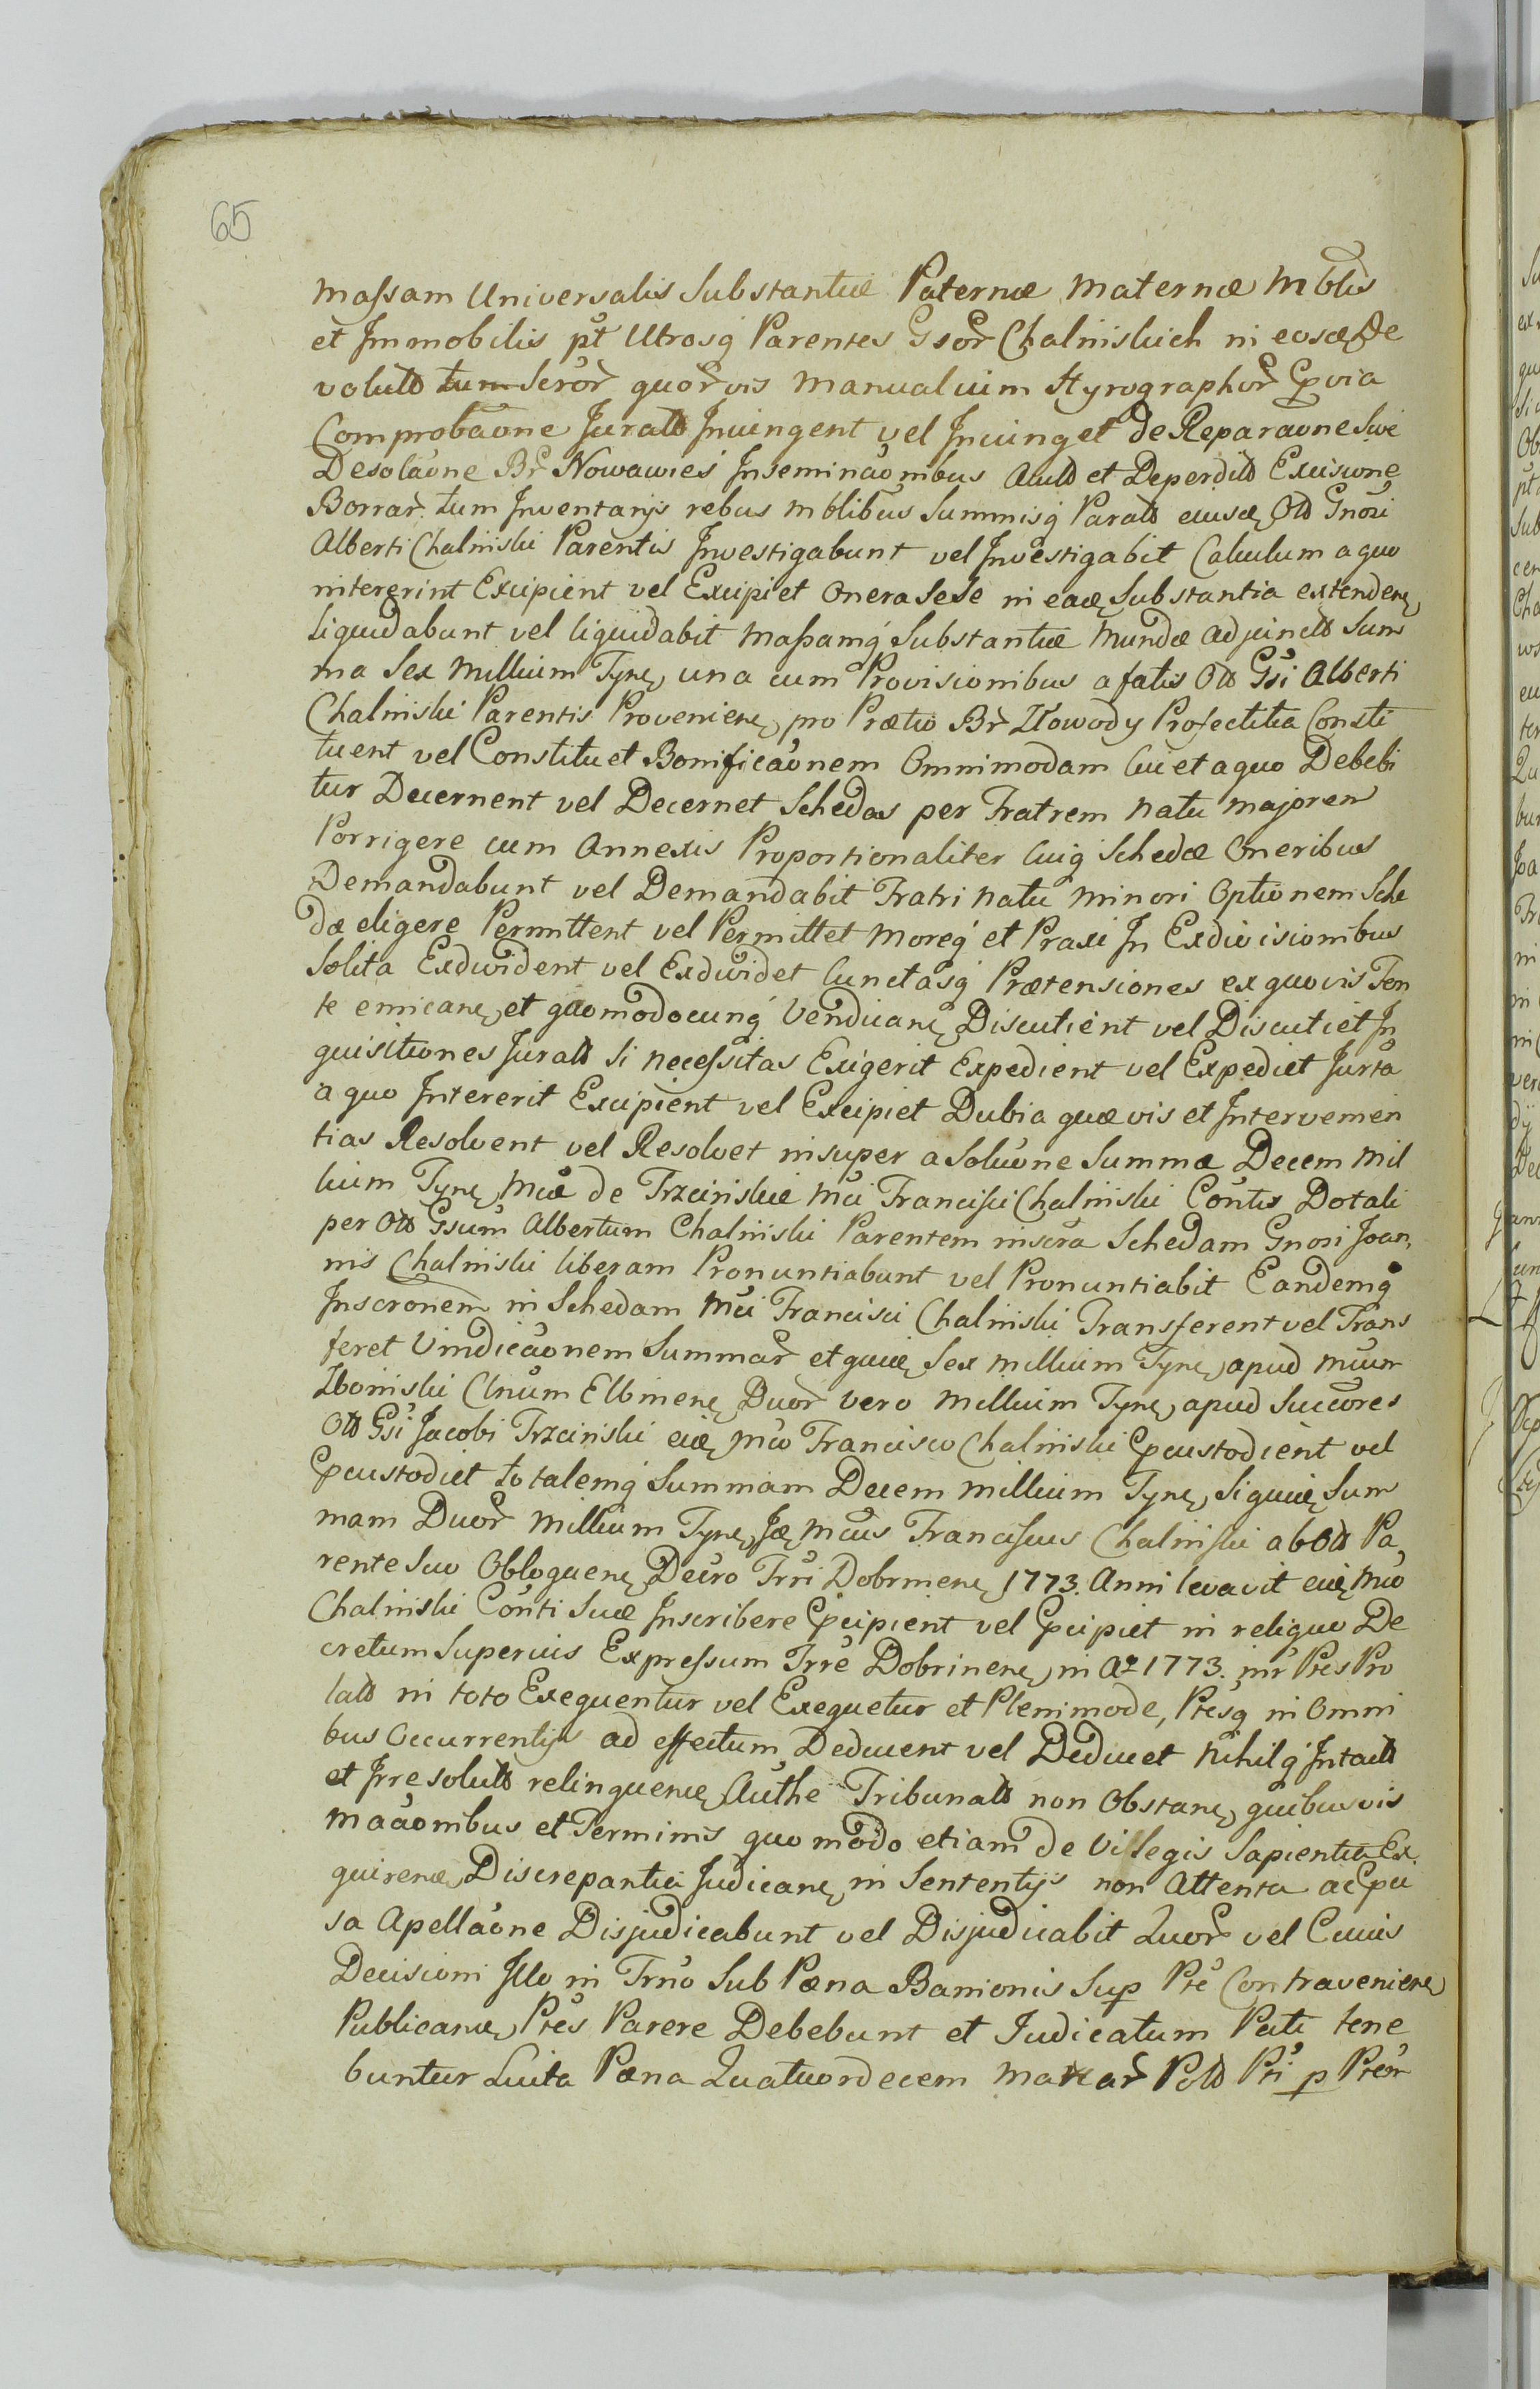 65
Massam Universalis Substantiæ Paternæ Maternæ Mblis
et Immobilis pt Utrosq Parentes Gsor Chalinskich in eosdem De
volutt tum Seror quorvis Manualium Hyrographor Cpvia
Comprobaone Juratt Invingent vel Invinget de Reparaone Sive
Desolaone Br Nowawies Inseminaonibus Autt et Deperditt Excisione
Borrar tum Inventarijs rebus mblibus Summisq Paratt eiusd Ott Gnosi
Alberti Chalinski Parentis Investigabunt vel Investigabit Calculum a quo
intererint Excipient vel Excipiet Onera Sese in ead Substantia extenden
liquidabunt vel liquidabit Massamq Substantiæ Mundæ adjunctt Sum
ma Sex Millium Tyne una cum Provisionibus a fatis Ott Gsi Alberti
Chalinski Parentis Provenien pro Prætio Br Głowody Profectitia Consti
tuent vel Constituet Bonificaonem Omnimodam Cui et a quo Debebi
tur Decernent vel Decernet Schedas per Fratrem natu majorem
Porrigere cum Annexis Proportionaliter Cuiq Schedæ Oneribus
Demandabunt vel Demandabit Fratri natu minori Optionem Sche
dæ eligere Permittent vel Permittet Moreq et Praxi In Exdivisionibus
Solita Exdivident vel Exdividet Cunctasq Prætensiones ex quovis Fon
te emican et quomodocunq Vendican Discutient vel Discutiet In
quisitiones Juratt Si necessitas Exigerit Expedient vel Expediet Jurta
a quo Intererit Excipient vel Excipiet Dubia quævis et Intervenien
tias Resolvent vel Resolvet insuper a Soluone Summæ Decem Mil
lium Tyne Mcæ de Trzcinskie Mci Francisci Chalinski Contis Dotali
per Ott Gsum Albertum Chalinski Parentem inscra Schedam Gnosi Joan
nis Chalinski liberam Pronuntiabunt vel Pronuntiabit Eandemq
Inscronem in Schedam Mci Francisci Chalinski Transferent vel Trans
feret Vindicaonem Summar et quid Sex Millium Tyne apud Mcum
Zboinski Clnum Elbinen Duor vero Millium Tyne apud Succores
Ott Gsi Jacobi Trzcinski eid Mco Francisco Chalinski Cpcustodient vel
Cpcustodiet totalemq Summam Decem Millium Tyne Siquid Sum
mam Duor Millium Tyne Id Mcus Franciscus Chalinski ab Ott Pa
rente Suo Obloquen Decro Trri Dobrinen 1773. Anni levavit eid Mco
Chalinski Conti Suæ Inscribere Cpcipient vel Cpcipiet in reliquo De
cretum Superius Expressum Trre Dobrinen in Ao 1773. inr Ptes Pro
latt in toto Exequentur vel Exequetur et Plenimode, Ptesq in Omni
bus Occurrentijs ad effectum Deducent vel Deducet Nihilq Intactt
et Irresolutt relinquen Authe Tribunatt non Obstan quibusvis
Maaonibus et Terminis quo modo etiam de Villegis Sapientia Ex
quiren Discrepantia Judican in Sententijs non Attenta ac Cpu
sa Apellaone Disjudicabunt vel Disjudicabit Quor vel Cuius
Decisioni Illo in Trno Sub Pæna Banionis Sup Pte Contravenien
Publican Ptes Parere Debebunt et Judicatum Pati tene
buntur Luita Pæna Quatuordecem Marcar Poltt Pti p Pteor